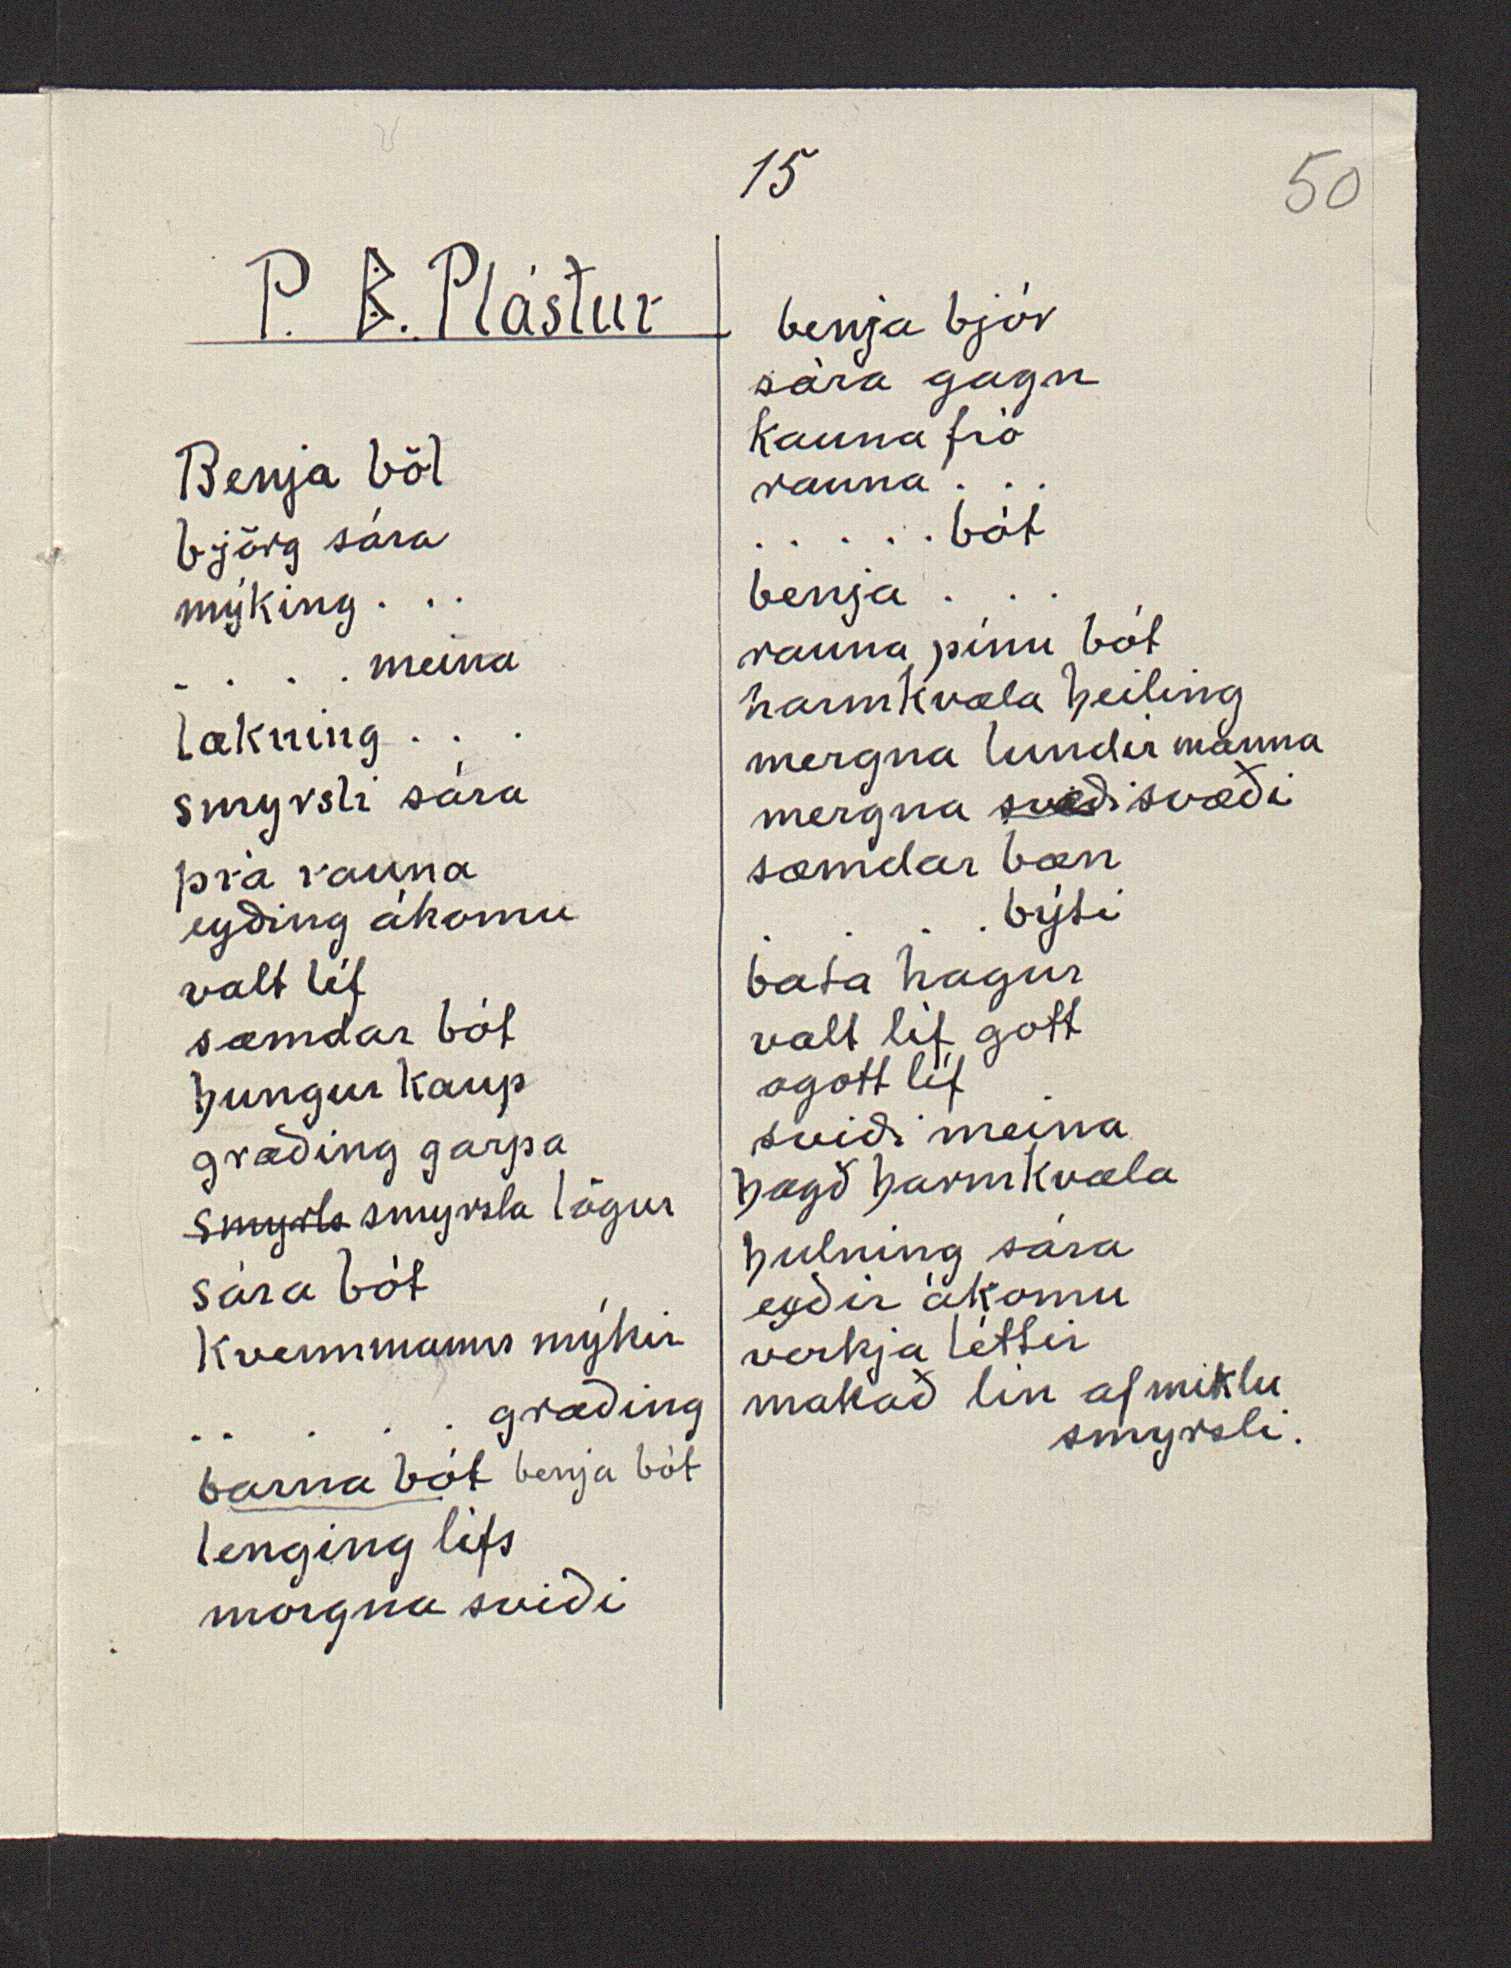 15
50
P. B. Plástur
Benja böl
björg sára
mýking . . .
. . . . meina
lækning . . .
smyrsli sára
þrá rauna
eyðing ákomu
valt líf
sæmdar bót
hungur kaup
græðing garpa
smyrls smyrsla lögur
sára bót
kvennmanns mýkir
. . . . . græding
barna bót benja bót
lenging lífs
morgna sviði
benja bjór
sára gagn
kauna fró
rauna . . .
. . . . . bót
benja . . .
rauna pínu bót
harmkvæla heiling
mergna lundir manna
mergna svæði svæði
sæmdar bæn
. . . . býsi
bata hagur
valt líf gott
ogott líf
sviði meina
hægð harmkvæla
hulning sára
eyðir ákomu
verkja léttir
makað lin af miklu
smyrsli.